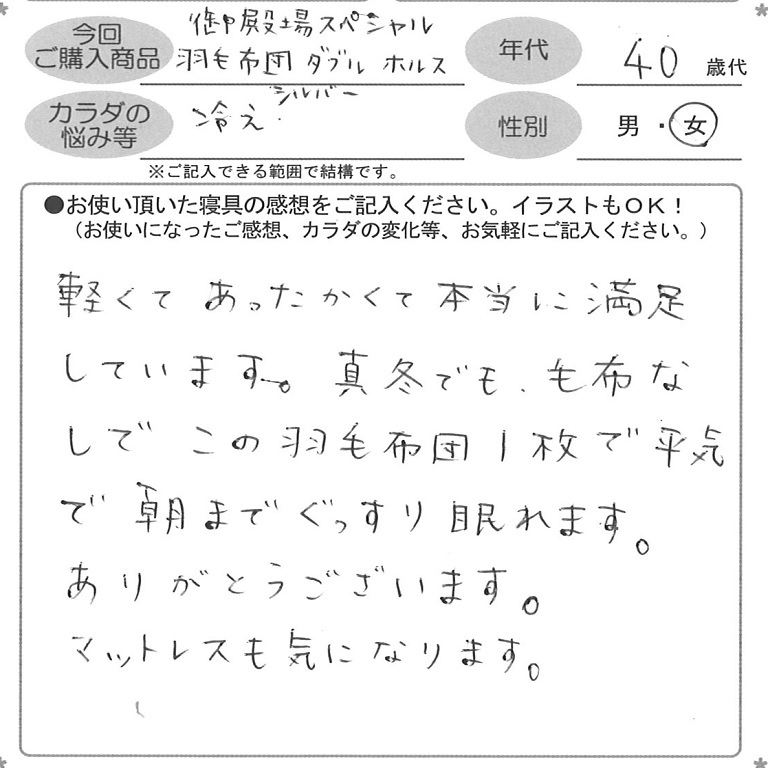 今回
ご購入商品
御殿場スペシャル
羽毛布団 ダブル ホルス
シルバー
年代
40 歳代
カラダの
悩み等
冷え
性別
男・女
※ご記入できる範囲で結構です。
●お使い頂いた寝具の感想をご記入ください。イラストもOK！
（お使いになったご感想、カラダの変化等、お気軽にご記入ください。）
軽くて あったかくて 本当に 満足
しています。真冬でも、毛布な
しで この 羽毛布団 1枚で 平気
で 朝まで ぐっすり 眠れます。
ありがとうございます。
マットレスも 気になります。